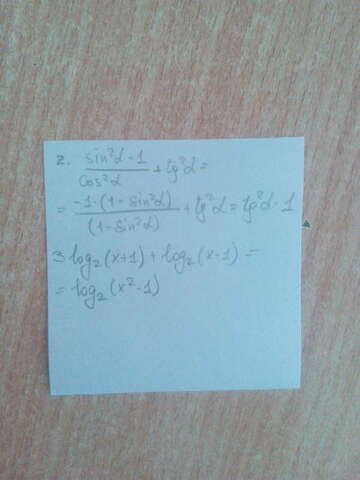 2. (sin²α - 1)/(cos²α) + tg²α =
= (-1·(1 - sin²α))/((1 - sin²α)) + tg²α = tg²α - 1
3 log₂(x+1) + log₂(x-1) =
= log₂(x² - 1)